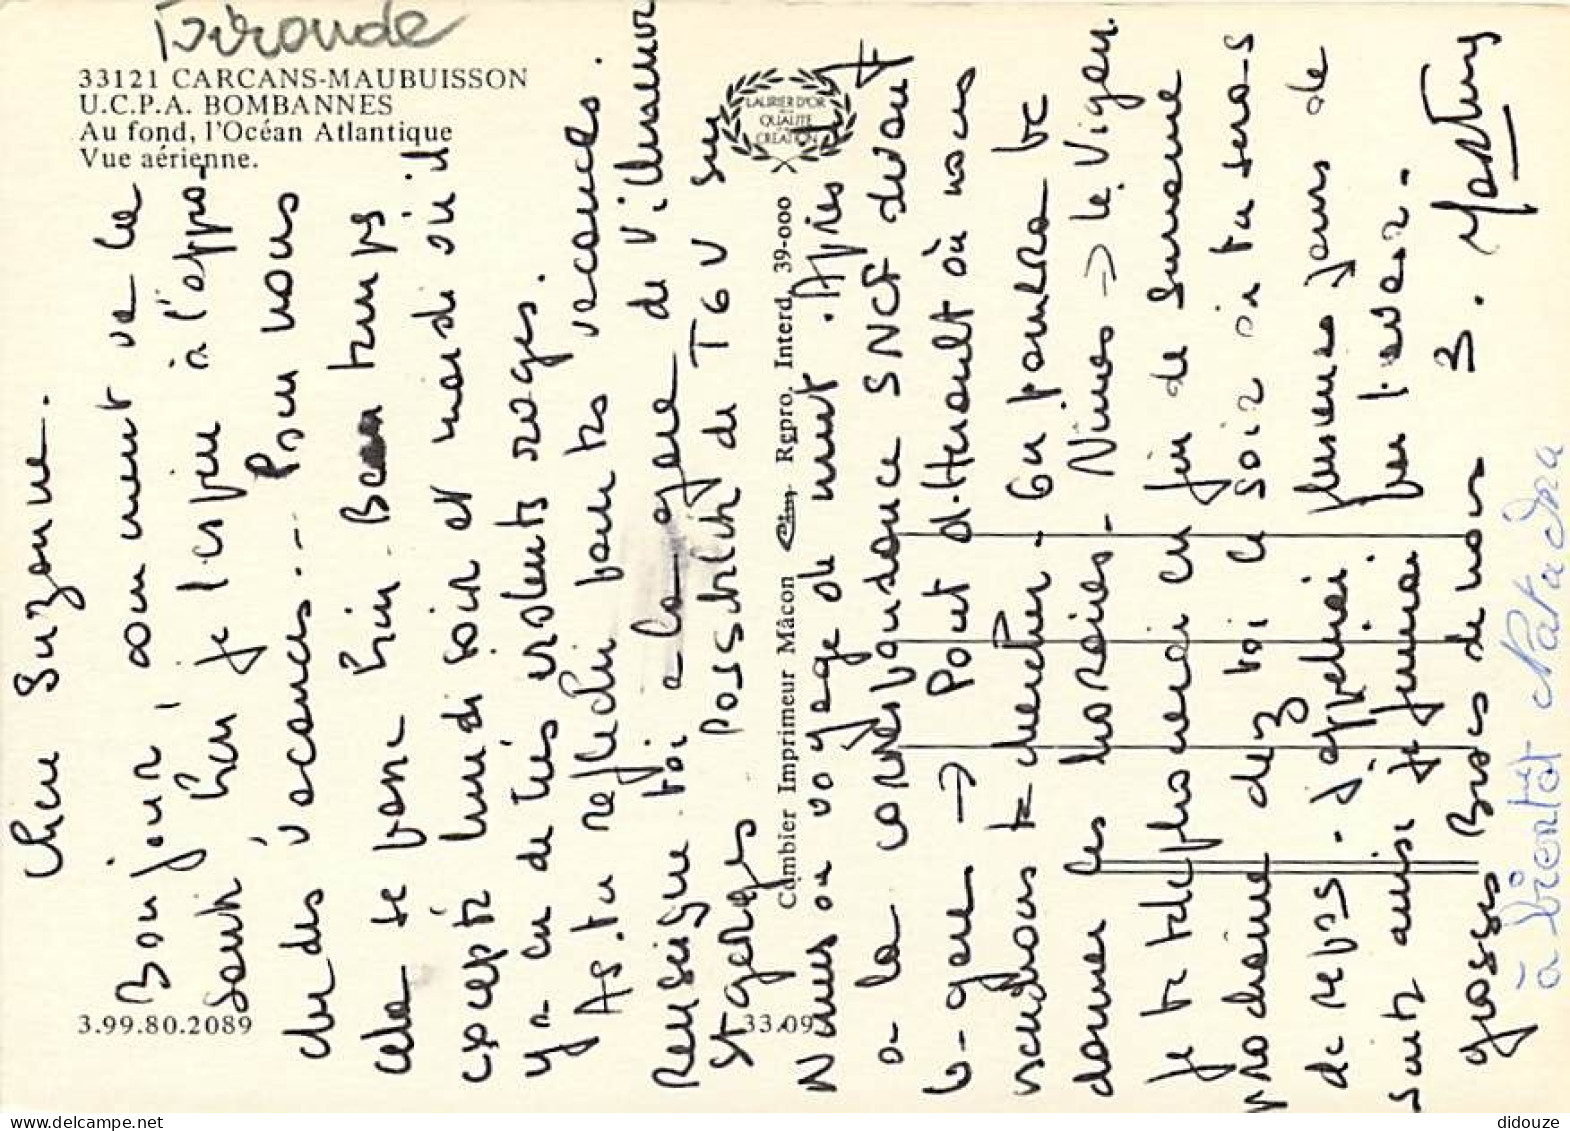 Gironde
33121 CARCANS-MAUBUISSON
U.C.P.A. BOMBANNES
Au fond, l'Océan Atlantique
Vue aérienne.
LAURIER D'OR
DE LA
QUALITE
CREATION
Combier Imprimeur Mâcon Cim Repro. Interd. 39-000
3.99.80.2089
33.09
Chère Suzanne.
Bonjour, comment va la
santé bien j'espère à l'appro-
che des vacances... Pour nous
cela se passe bien. Beau temps
excepté lundi soir et mardi où il
y a eu de très violents orages.
As-tu réfléchi pour tes vacances.
Renseigne toi à la gare de
St Georges Possibilité de TGV sur
Nîmes ou voyage de nuit. Après il y
a la correspondance SNCF devant
la gare → Pont d'Hérault où nous
viendrons te chercher - On pourra te
donner les horaires - Nîmes → le Vigan.
Je te téléphonerai en fin de semaine
prochaine chez toi le soir où tu seras
de repos - J'appellerai plusieurs jours de
suite ainsi je finirai par l'avoir.
Grosses Bises de nous 3.
à bientôt